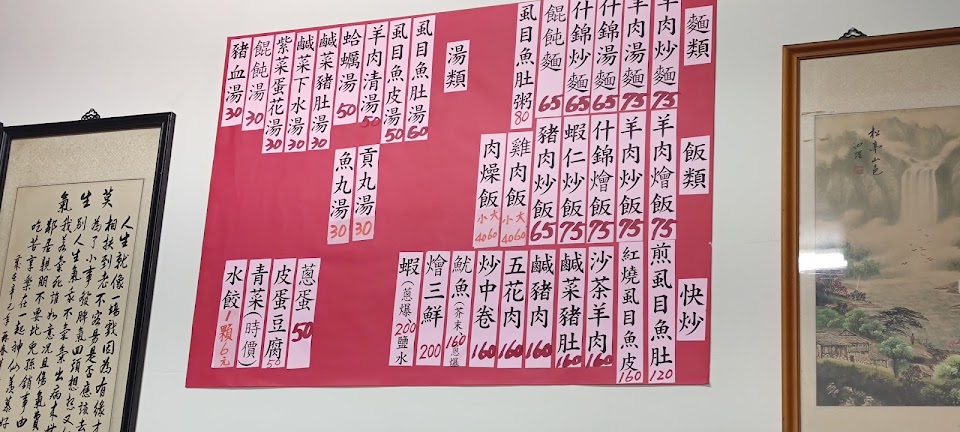 麵類
羊肉炒麵 75
羊肉湯麵 75
什錦湯麵 65
什錦炒麵 65
餛飩麵 65
虱目魚肚粥 80
湯類
虱目魚肚湯 60
虱目魚皮湯 50
羊肉清湯 50
蛤蠣湯 50
鹹菜豬肚湯 30
鹹菜下水湯 30
紫菜蛋花湯 30
餛飩湯 30
豬血湯 30
貢丸湯 30
魚丸湯 30
飯類
羊肉燴飯 75
羊肉炒飯 75
什錦燴飯 75
蝦仁炒飯 75
豬肉炒飯 65
雞肉飯 大60 小40
肉燥飯 大60 小40
快炒
煎虱目魚肚 120
紅燒虱目魚皮 160
沙茶羊肉 160
鹹菜豬肚 160
鹹豬肉 160
五花肉 160
炒中卷 160
魷魚(芥末 160 蔥爆
燴三鮮 200
蝦(蔥爆 200 鹽水
蔥蛋 50
皮蛋豆腐 50
青菜(時價)
水餃1顆6元
莫生氣
人生就像一場戲因為有緣才
相扶到老不容易是否應該去
為了小事發脾氣回頭想想又
別人生氣我不氣氣出病來
我若氣死誰如意況且傷氣費
鄰居親朋不要比兒孫瑣事由
吃苦享樂在一起神仙羨慕好
松亭山色